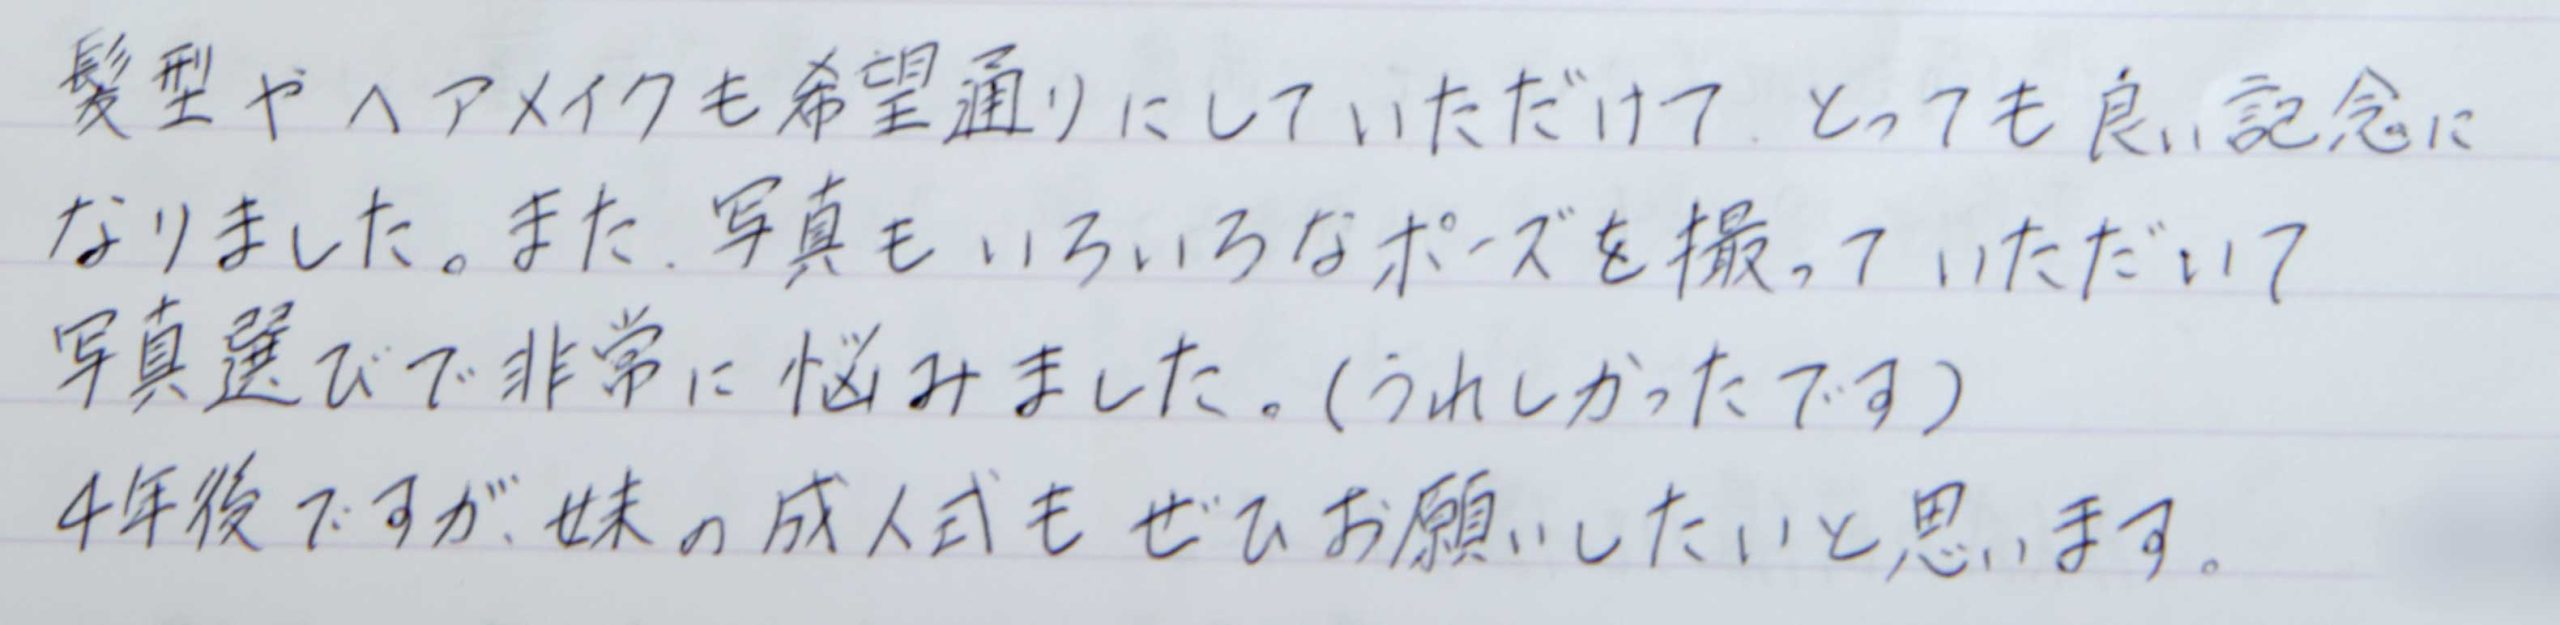 髪型やヘアメイクも希望通りにしていただけて、とっても良い記念に
なりました。また、写真もいろいろなポーズを撮っていただいて
写真選びで非常に悩みました。(うれしかったです)
4年後ですが、妹の成人式もぜひお願いしたいと思います。